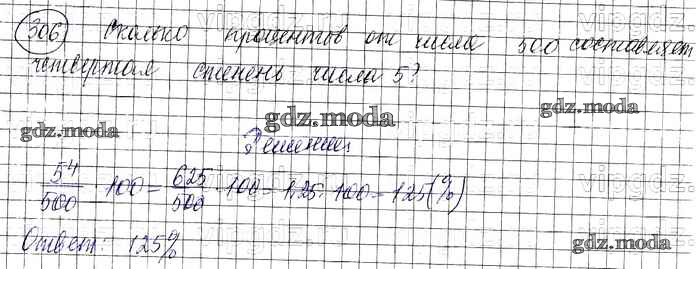 306 Сколько процентов от числа 500 составляет
четвертая степень числа 5?
Решение
5⁴/500 · 100 = 625/500 · 100 = 1,25 · 100 = 125 (%)
Ответ: 125%
gdz.moda
gdz.moda
gdz.moda
gdz.moda
gdz.moda
vipgdz.
vipgdz.
vipgdz.